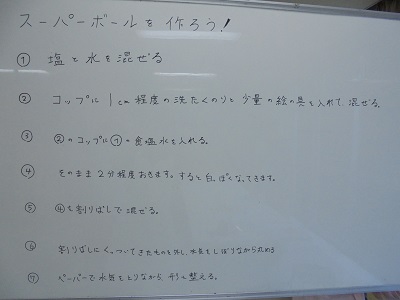 スーパーボールを作ろう!
① 塩と水を混ぜる
② コップに1cm程度の洗たくのりと少量の絵の具を入れて、混ぜる。
③ ②のコップに①の食塩水を入れる。
④ そのまま2分程度おきます。すると白っぽくなってきます。
⑤ ④を割りばしで混ぜる。
⑥ 割りばしにくっついてきたものを外し、水気をしぼりながら丸める
⑦ ペーパーで水気をとりながら、形を整える。